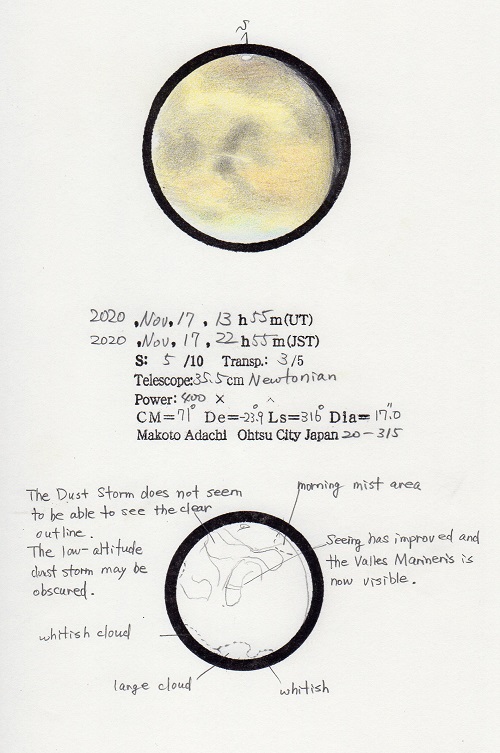 S
2020 ,Nov,17 , 13 h 55 m(UT)
2020 ,Nov,17 , 22 h 55 m(JST)
S: 5 /10 Transp.: 3/5
Telescope:35.5cm Newtonian
Power: 400 ×
CM=71° De=-23.9° Ls=316° Dia=17".0
Makoto Adachi Ohtsu City Japan 20-315
The Dust Storm does not seem
to be able to see the clear
outline.
The low-altitude
dust storm may be
obscured.
morning mist area
Seeing has improved and
the Valles Marineris is
now visible.
whitish cloud
large cloud
whitish